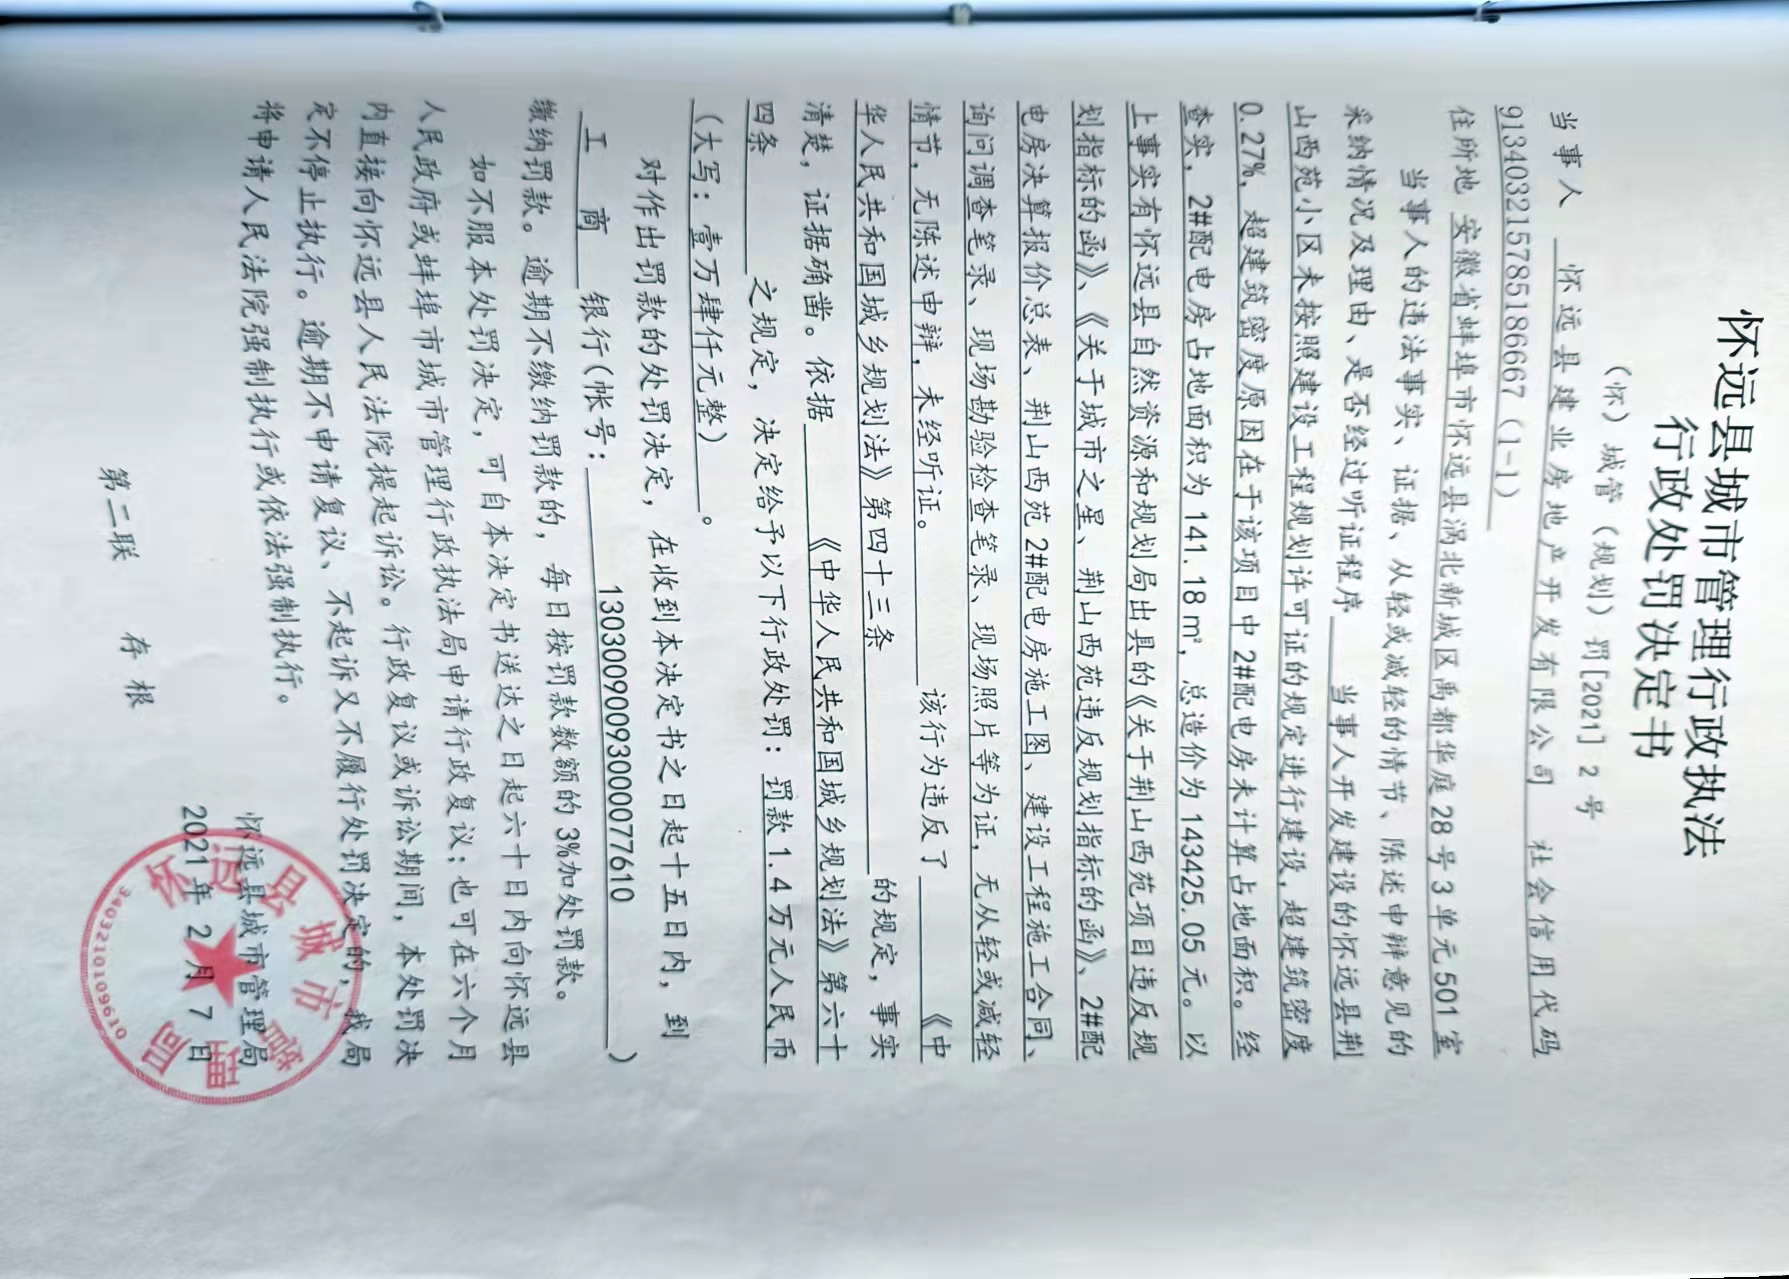 怀远县城市管理行政执法
行政处罚决定书
（怀）城管（规划）罚[2021] 2 号
当事人 怀远县建业房地产开发有限公司 社会信用代码
913403215785186667（1-1）
住所地 安徽省蚌埠市怀远县涡北新城区禹都华庭 28 号 3 单元 501 室
当事人的违法事实、证据、从轻或减轻的情节、陈述申辩意见的
采纳情况及理由、是否经过听证程序 当事人开发建设的怀远县荆
山西苑小区未按照建设工程规划许可证的规定进行建设，超建筑密度
0.27%，超建筑密度原因在于该项目中 2#配电房未计算占地面积。经
查实，2#配电房占地面积为 141.18 ㎡，总造价为 143425.05 元。以
上事实有怀远县自然资源和规划局出具的《关于荆山西苑项目违反规
划指标的函》、《关于城市之星、荆山西苑违反规划指标的函》、2#配
电房决算报价总表、荆山西苑 2#配电房施工图、建设工程施工合同、
询问调查笔录、现场勘验检查笔录、现场照片等为证，无从轻或减轻
情节，无陈述申辩，未经听证。 该行为违反了 《中
华人民共和国城乡规划法》第四十三条 的规定，事实
清楚，证据确凿。依据 《中华人民共和国城乡规划法》第六十
四条 之规定，决定给予以下行政处罚：罚款 1.4 万元人民币
（大写：壹万肆仟元整） 。
对作出罚款的处罚决定，在收到本决定书之日起十五日内，到
工 商 银行（帐号： 1303009009300077610 ）
缴纳罚款。逾期不缴纳罚款的，每日按罚款数额的 3%加处罚款。
如不服本处罚决定，可自本决定书送达之日起六十日内向怀远县
人民政府或蚌埠市城市管理行政执法局申请行政复议；也可在六个月
内直接向怀远县人民法院提起诉讼。行政复议或诉讼期间，本处罚决
定不停止执行。逾期不申请复议、不起诉又不履行处罚决定的，我局
将申请人民法院强制执行或依法强制执行。
怀远县城市管理局
2021 年 2 月 7 日
怀远县城市管理局
3403210109610
第二联 存 根